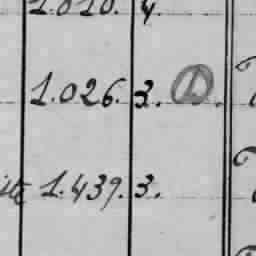 1.010. 4.
1.026. 3. D.
1.439. 3.